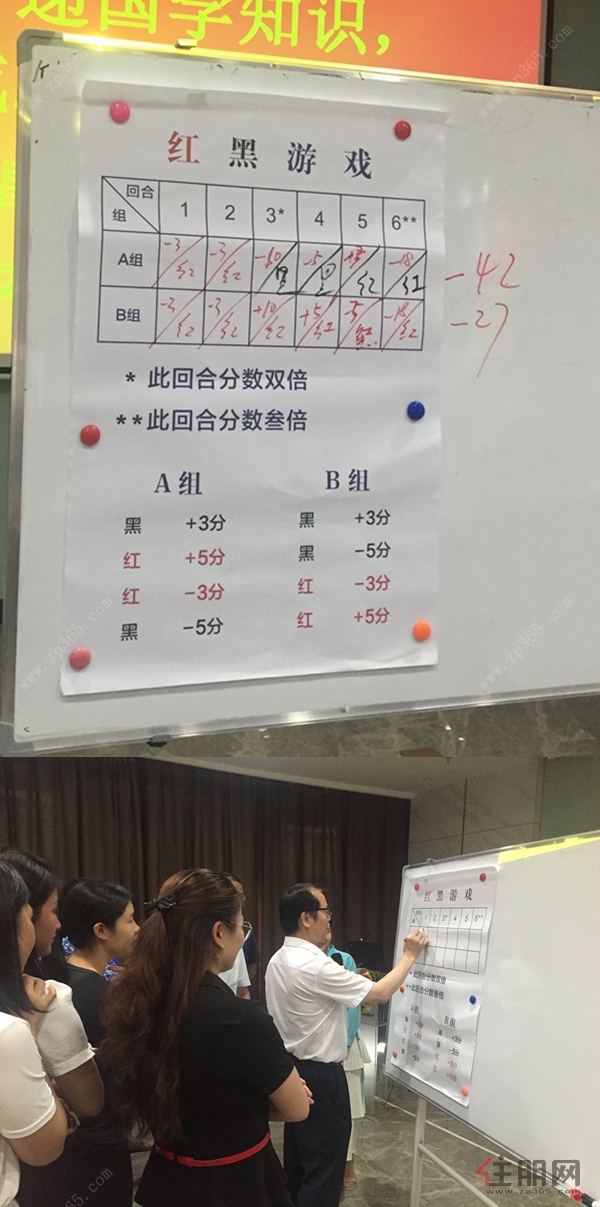 递国学知识，
红黑游戏
回合 组 1 2 3* 4 5 6**
A组 -3/红 -3/红 -10/黑 -5/黑 /红 -18/红 -42
B组 -3/红 -3/红 +10/红 +5/红 -5/黑 -18/红 -27
* 此回合分数双倍
**此回合分数叁倍
A组 B组
黑 +3分 黑 +3分
红 +5分 黑 -5分
红 -3分 红 -3分
黑 -5分 红 +5分
www.zp365.com
红黑游戏
1 2 3* 4 5 6**
*此回合分数双倍
**此回合分数叁倍
A组 B组
+3分
-5分
-3分
+5分
住朋网
www.zp365.com